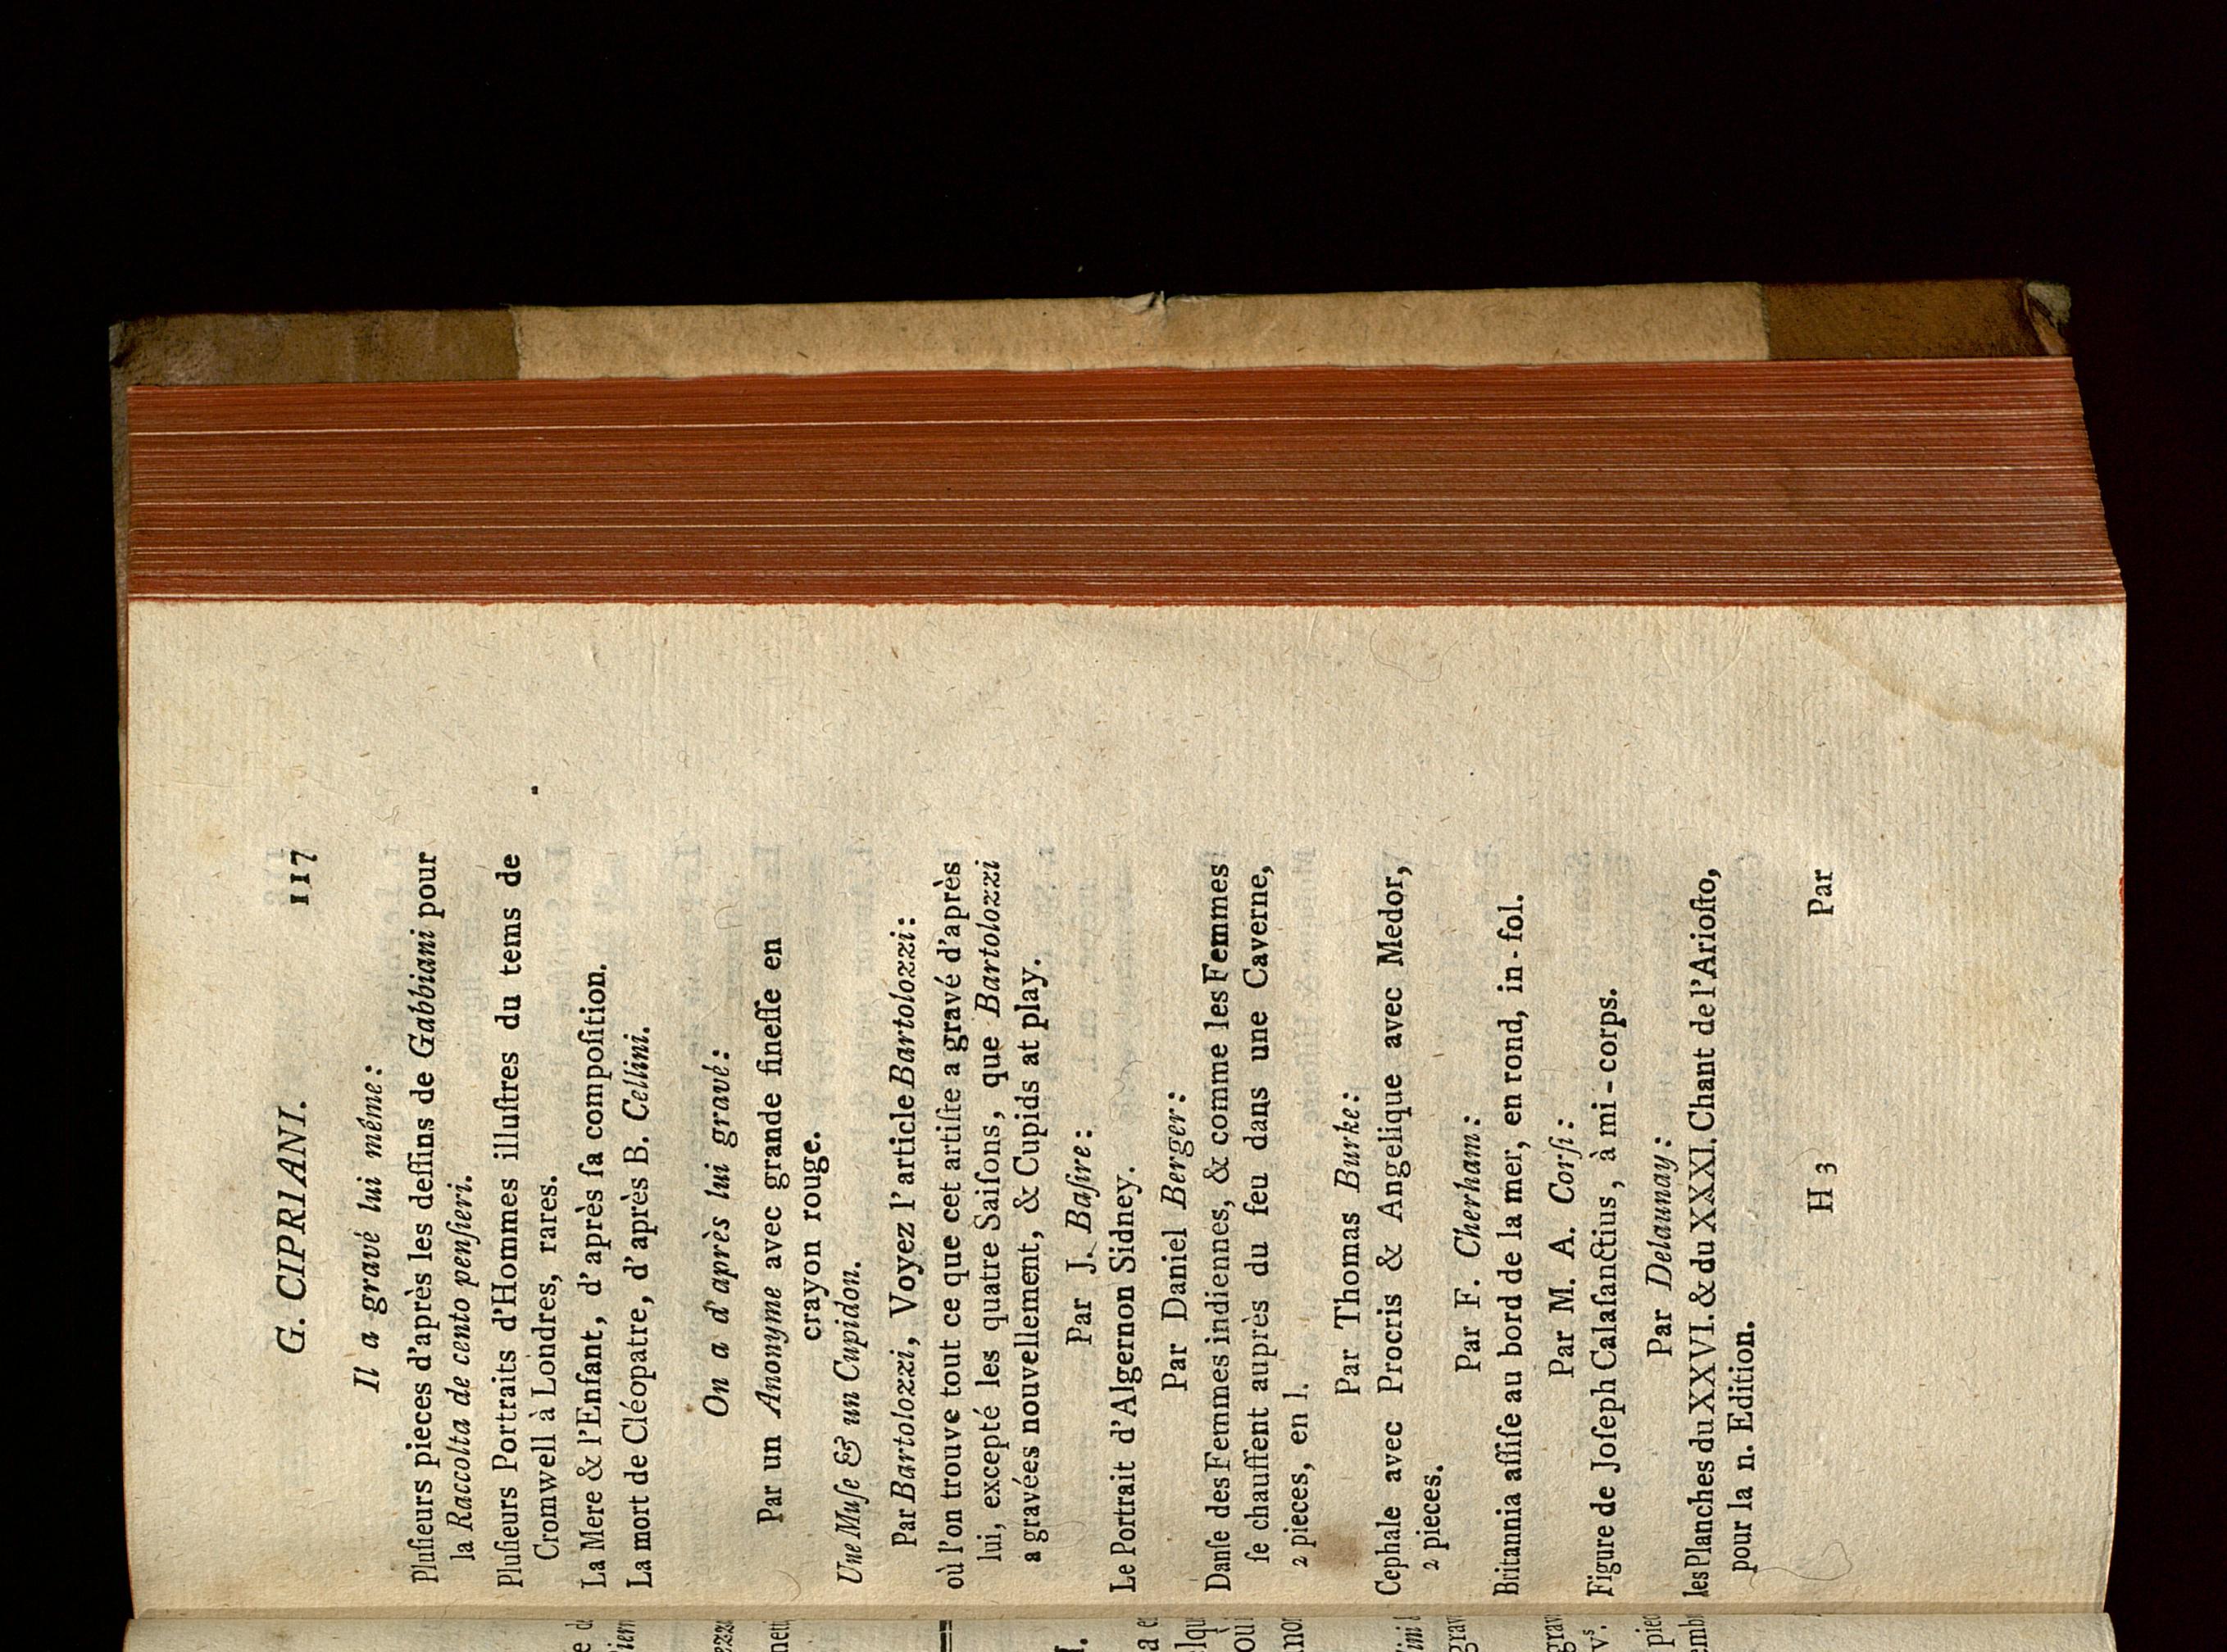 G. CIPRIANI. 117
Il a gravé lui même:
Pluſieurs pieces d'après les deſſins de Gabbiani pour
la Raccolta de cento penſieri.
Pluſieurs Portraits d'Hommes illuſtres du tems de
Cromwell à Londres, rares.
La Mere & l'Enfant, d'après ſa compoſition.
La mort de Cléopatre, d'après B. Cellini.
On a d'après lui gravé:
Par un Anonyme avec grande fineſſe en
crayon rouge.
Une Muſe & un Cupidon.
Par Bartolozzi, Voyez l'article Bartolozzi:
où l'on trouve tout ce que cet artiſte a gravé d'après
lui, excepté les quatre Saiſons, que Bartolozzi
a gravées nouvellement, & Cupids at play.
Par J. Baſire:
Le Portrait d'Algernon Sidney.
Par Daniel Berger:
Danſe des Femmes indiennes, & comme les Femmes
ſe chauffent auprès du feu dans une Caverne,
2 pieces, en l.
Par Thomas Burke:
Cephale avec Procris & Angelique avec Medor,
2 pieces.
Par F. Cherham:
Britannia aſſiſe au bord de la mer, en rond, in-fol.
Par M. A. Corſi:
Figure de Joſeph Calaſanctius, à mi-corps.
Par Delaunay:
les Planches du XXVI. & du XXXI. Chant de l'Arioſto,
pour la n. Edition.
H 3 Par